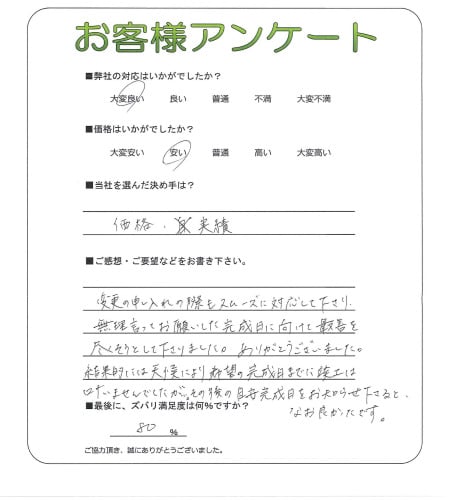 お客様アンケート
■弊社の対応はいかがでしたか？
大変良い 良い 普通 不満 大変不満
■価格はいかがでしたか？
大変安い 安い 普通 高い 大変高い
■当社を選んだ決め手は？
価格、実績
■ご感想・ご要望などをお書き下さい。
変更の申し入れの際もスムーズに対応して下さり、
無理言ってお願いした完成日に向けて最善を
尽くそうとして下さりました。ありがとうございました。
結果的には天候により希望の完成日までに竣工は
出来ませんでしたが、その後の目安完成日をお知らせ下さると、
なお良かたです。
■最後に、ズバリ満足度は何％ですか？
80 ％
ご協力頂き、誠にありがとうございました。